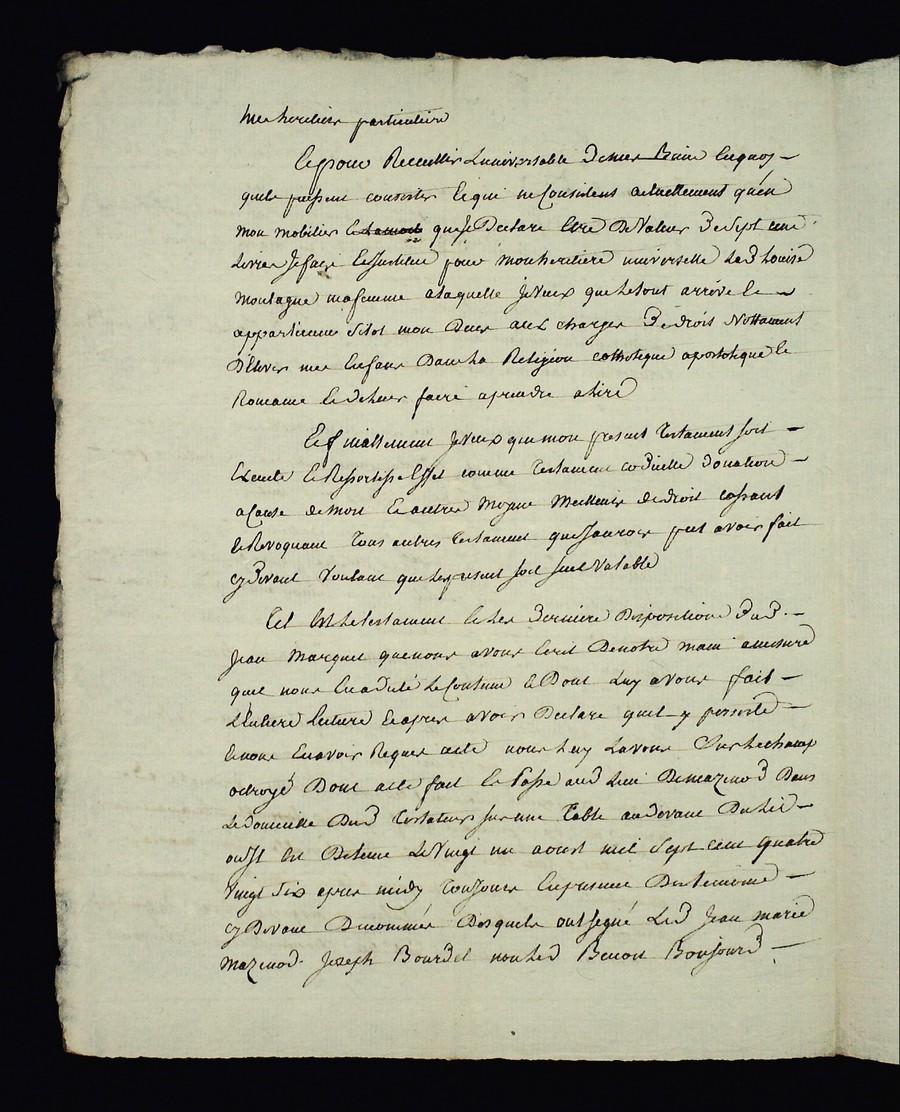 mes heritiers particuliers
Et pour Recueillir Luniversable de mes Biens En quoy
quils puissent consister Et qui ne Consistent actuellement quen
mon mobilier que Je Declare Etre De Valeur De Sept cent
Livres Je fais Et Jnstitue pour mon heritiere universelle Lad Louise
montagne ma femme a laquelle Je Veux que le tout arrive Et
appartienne Sitot mon Deces aux charges De droit Nottament
D'Elever mes Enfans Dans La Religion catholique apostolique Et
Romaine Et de leur faire aprendre a lire
Et finallement Je Veux que mon present Testament soit
Execute Et Ressortisse Effet comme Testament codicille donation
a Cause de mort Et autres Moyens Meilleurs de droit cassant
Et Revoquant Tous autres Testament que Jaurois put avoir fait
cy Devant Voulant que Le present soit seul Valable
Tel Est Le testament Et Les Derniere Disposition Dud
Jean Marquet que nous avons Ecrit De notre main amesure
quil nous En a dicté Le Contenu Et Dont Luy avons fait
L'Entiere Lecture Et apres avoir Declare quil y persiste
Et nous En avoir Requis acte nous Luy Lavons Sur Le champ
octroyé Dont acte fait Et Passe aud Lieu De mazenod Dans
Le domicille Dud Testateur sur une Table au devant Du Lit
ou Jl Est Detenu Le Vingt un aoust mil Sept cent quatre
Vingt Six apres midy Toujours En presence Des temoins
cy Devant Denommés Desquels ont signé Led Jean marie
mazenod Joseph Bourdel non Led Benoit Bonjourd